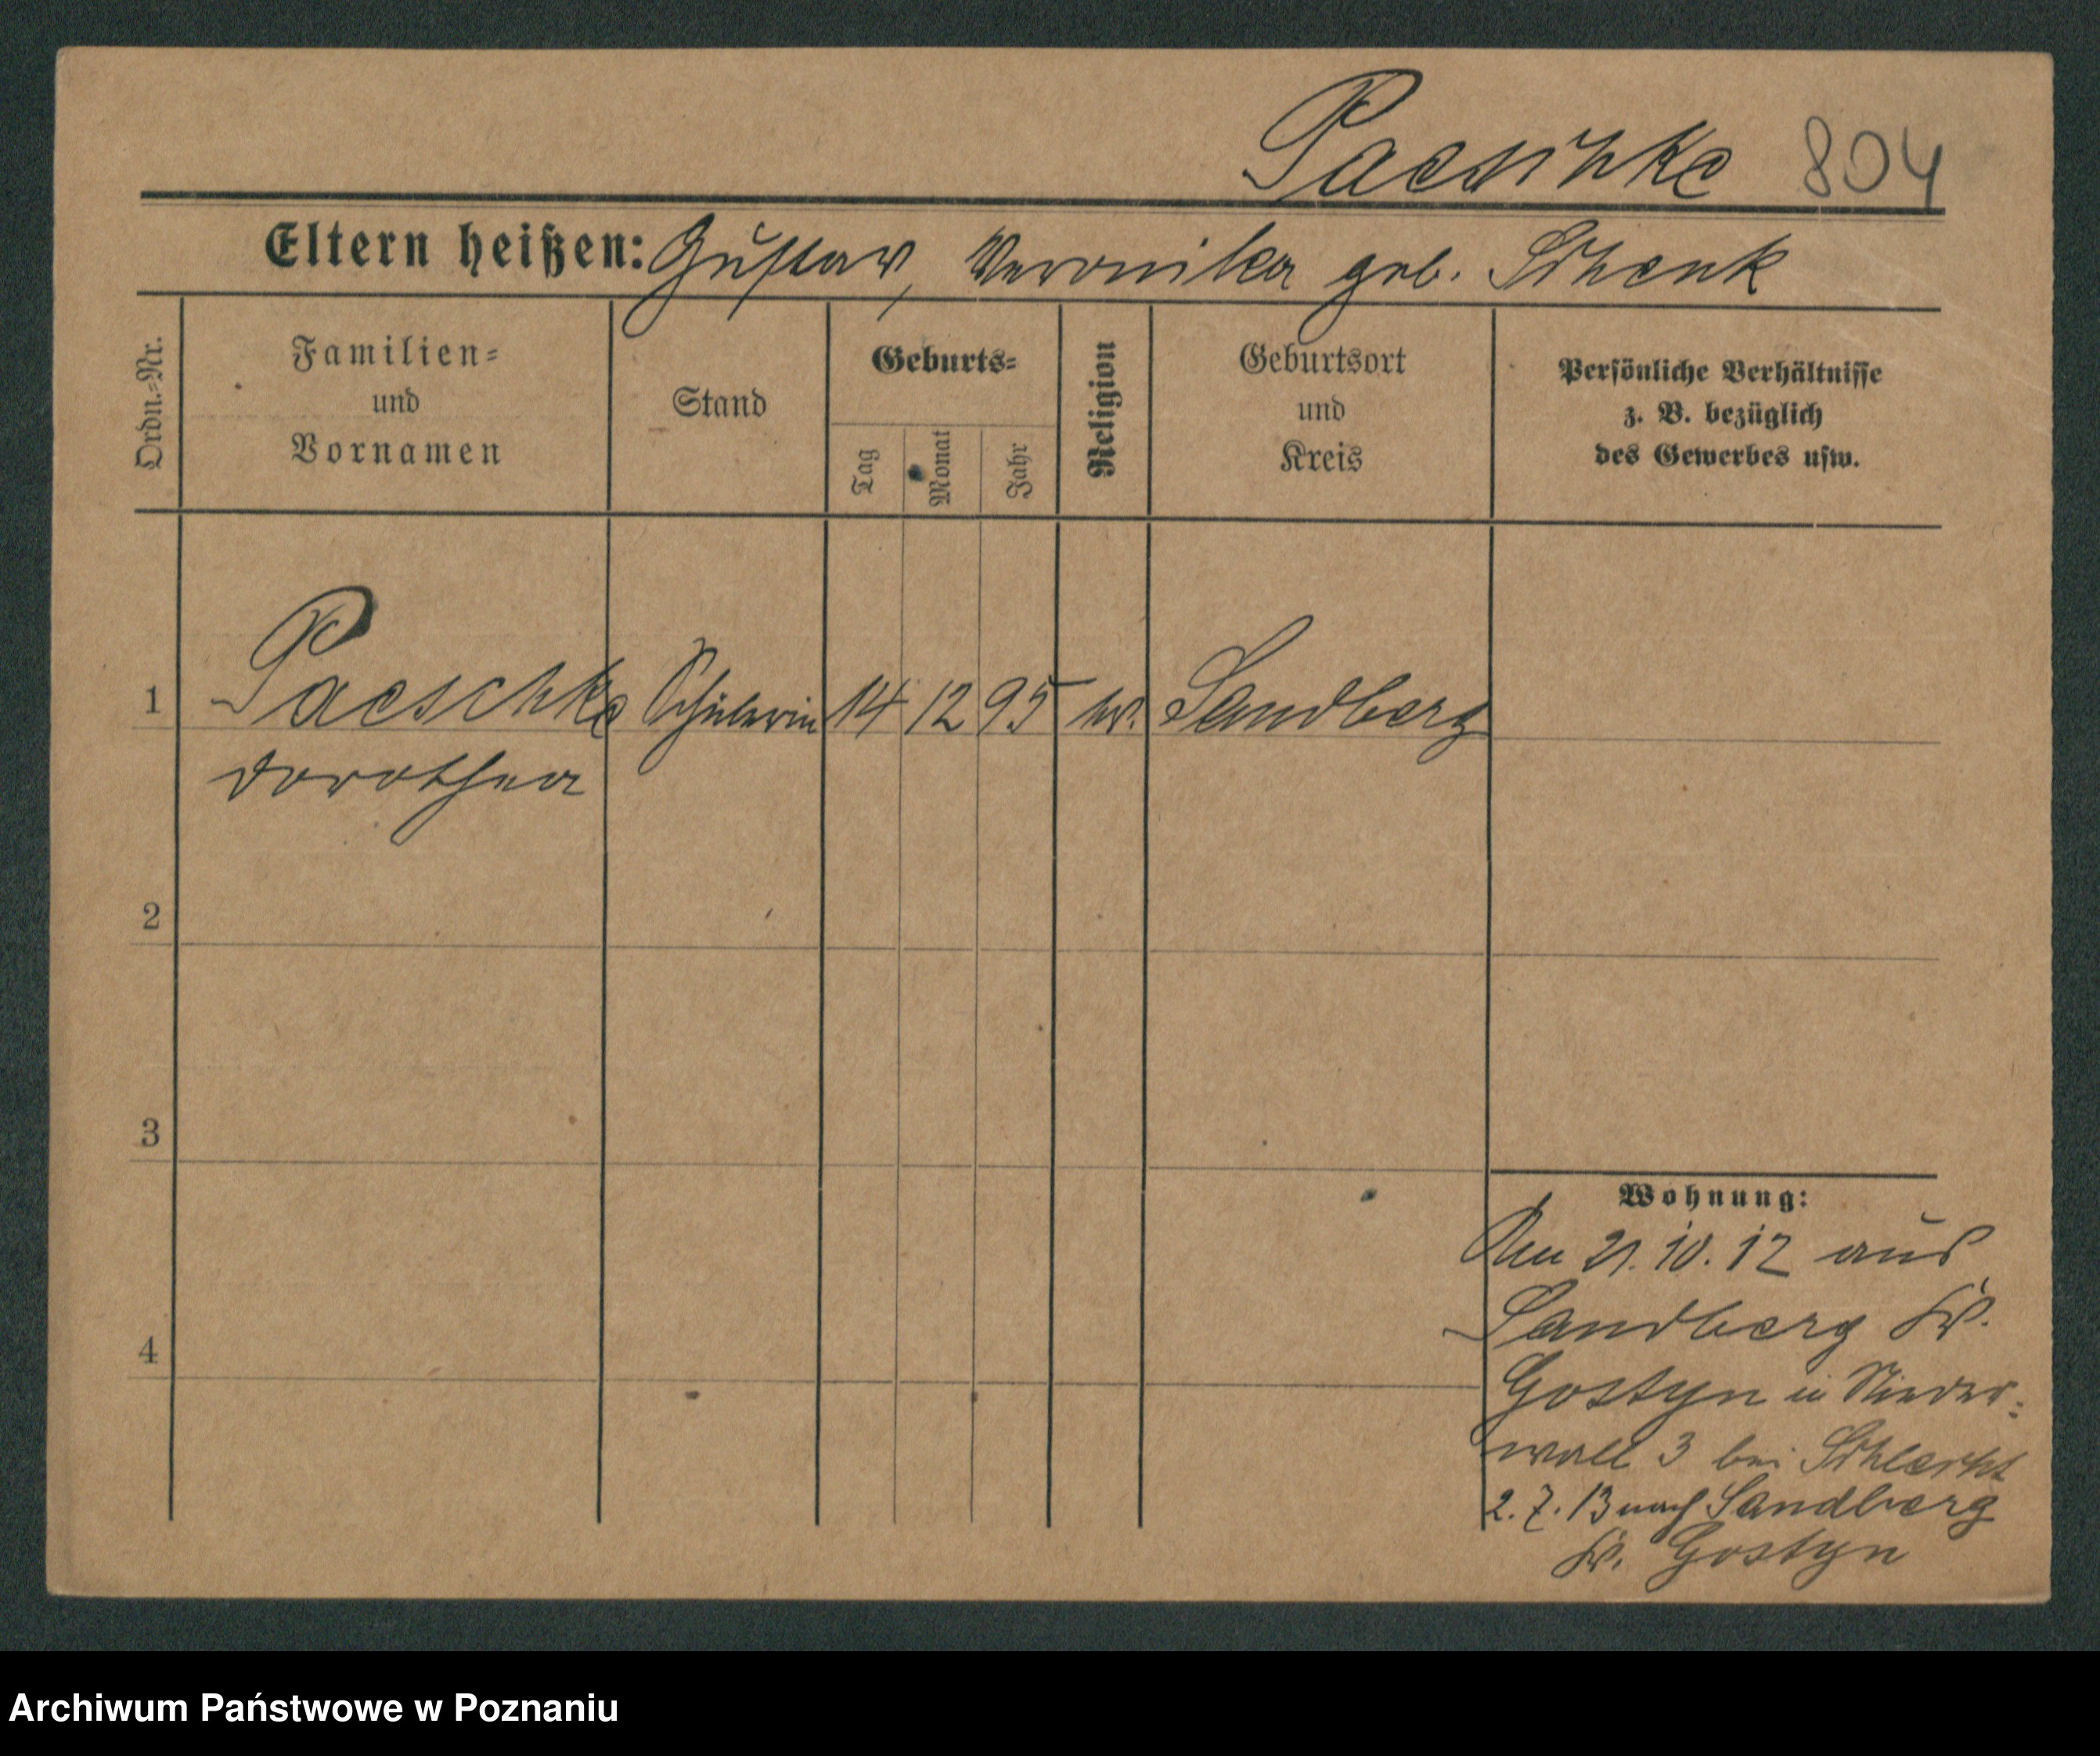 Paeschke 804
Eltern heißen: Gustav, Veronika geb. Schenk
Ordn.=Nr.
Familien=
und
Vornamen
Stand
Geburts=
Tag
Monat
Jahr
Religion
Geburtsort
und
Kreis
Persönliche Verhältnisse
z. B. bezüglich
des Gewerbes usw.
1 Paeschke Schülerin 14 12 95 Sandberg
Dorothea
2
3
4
Wohnung:
21.10.12 aus
Sandberg Kr.
Gostyn in Nieder=
wall 3 bei Schlecht
2.7.13 nach Sandberg
Kr. Gostyn
Archiwum Państwowe w Poznaniu